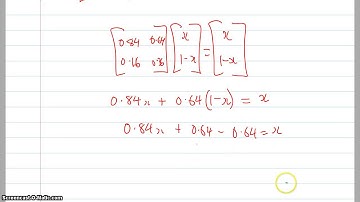 [0.84 0.64] [x] = [x]
[0.16 0.36] [1-x] [1-x]
0.84x + 0.64(1-x) = x
0.84x + 0.64 - 0.64 = x
Screencast-O-Matic.com